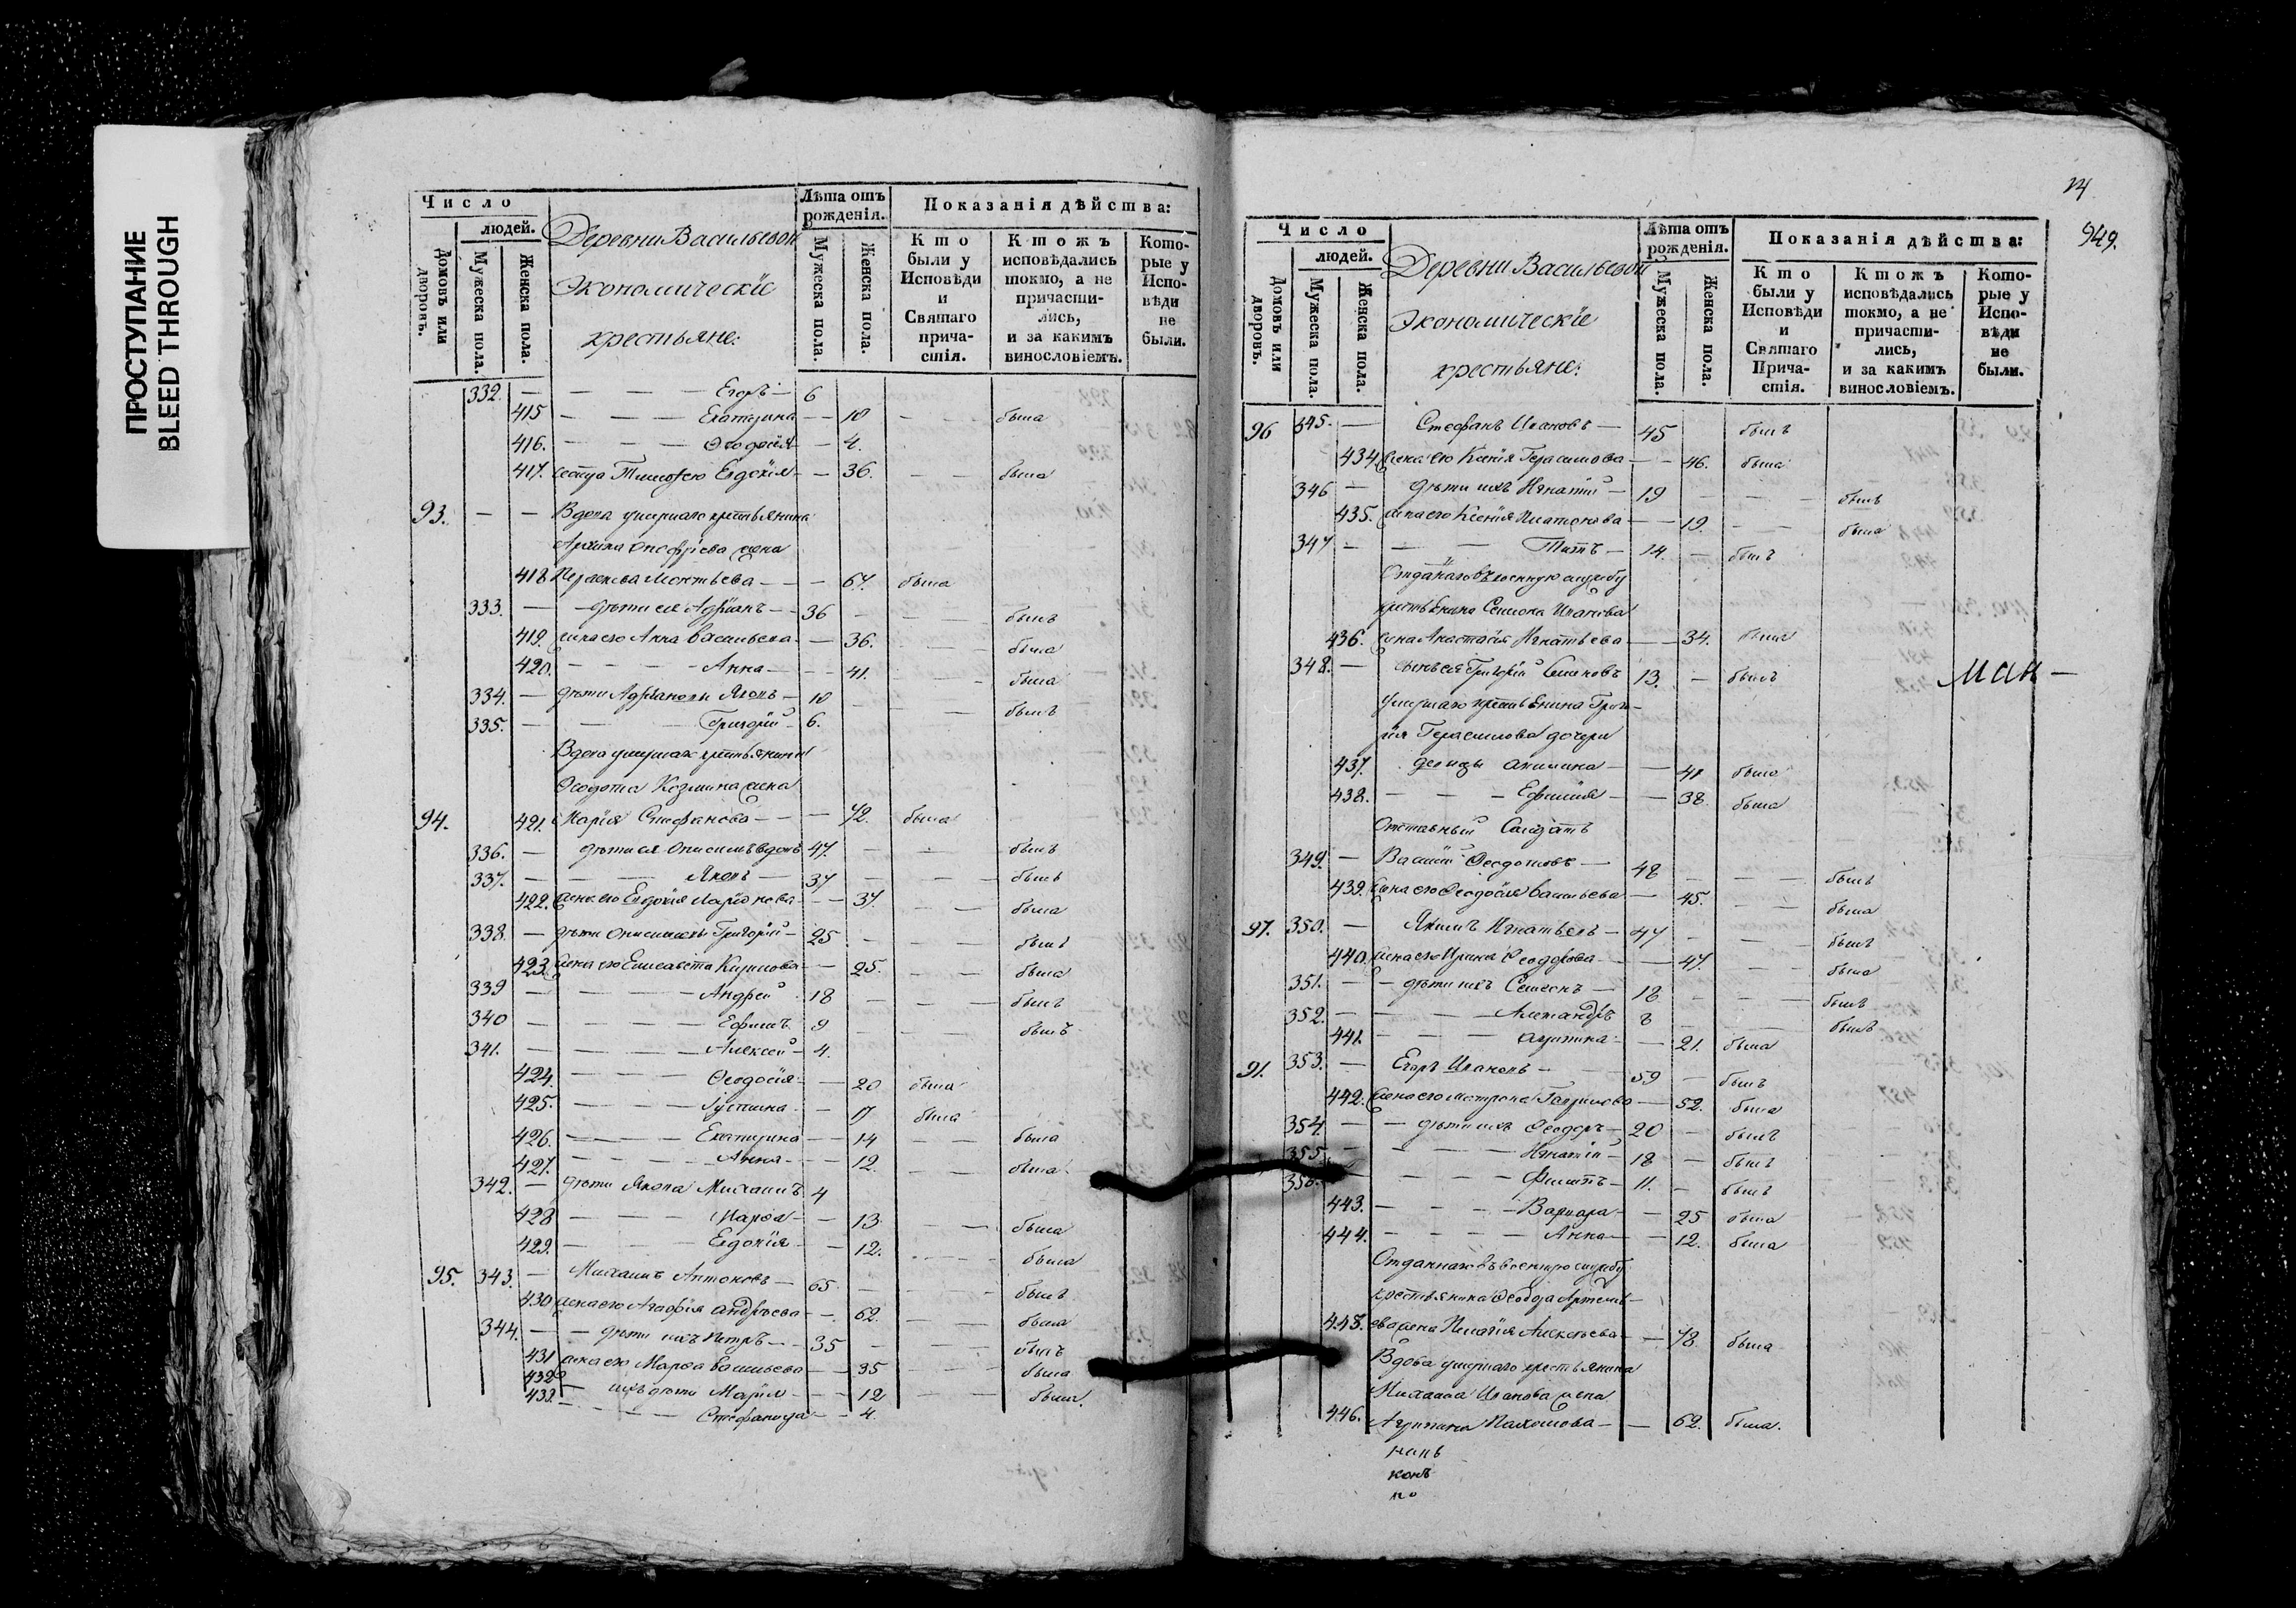 ПРОСТУПАНИЕ
BLEED THROUGH
Число
людей.
Домовъ или дворовъ.
Мужеска пола.
Женска пола.
Деревни Васильевой
Экономическіе
крестьяне:
Лѣта отъ рожденія.
Мужеска пола.
Женска пола.
Показанія дѣйства:
Кто были у Исповѣди и Святаго причастія.
Ктожъ исповѣдались токмо, а не причастились, и за какимъ винословіемъ.
Которые у Исповѣди не были.
332. — — — — Егоръ — 6
415 — — — Екатерина — — 10 — — была
416. — — — Ѳеодосія — — 4.
417. сестра Тимоѳею Евдокія — — 36. — — была
93. — — Вдова умершаго крестьянина
Архипа Онофріева жена
418 Параскева Леонтьева — — — 67. была
333. — — дѣти ея Адріанъ — — 36 — — — былъ
419. жена его Анна Васильева — — 36. — — была
420. — — — — Анна — — — 41. — — была
334. — дѣти Адріановы Яковъ — 10 — — — былъ
335. — — — Григорій — 6.
Вдова умершаго крестьянина
Ѳеодота Козмина жена
94. 421. Марія Стефанова — — — 72. была
336. — дѣти ея Онисимъ вдовъ 47. — — былъ
337. — — — — Яковъ — 37 — — — былъ
422. жена его Евдокія Ларіонова — — 37. — — была
338. — дѣти Онисимовы Григорій — 25 — — — былъ
423. жена его Елисавета Кирилова — — 25. — — была
339 — — — — Андрей 18 — — — былъ
340 — — — — Ефимъ 9 — — — былъ
341. — — — — Алексей — 4.
424. — — — Ѳеодосія — — 20 была
425. — — — Іустина — — 17 была
426. — — — — Екатерина — — 14 — — была
427. — — — — Анна — — 12. — — была
342. — дѣти Якова Михаилъ 4
428 — — — Марѳа — — 13. — — была
429. — — — Евдокія — — 12. — — была
95. 343. — Михаилъ Антоновъ — 65. — — былъ
430 жена его Агафія Андреева — — 62. — — была
344. — — дѣти ихъ Петръ — — 35 — — — былъ
431 жена его Марѳа Васильева — — 35 — — была
432 — ихъ дѣти Марія — — — 12 — — была.
433. — — — — Стефанида — — 4.
14
949.
Число
людей.
Домовъ или дворовъ.
Мужеска пола.
Женска пола.
Деревни Васильевой
Экономическіе
крестьяне:
Лѣта отъ рожденія.
Мужеска пола.
Женска пола.
Показанія дѣйства:
Кто были у Исповѣди и Святаго Причастія.
Ктожъ исповѣдались токмо, а не причастились, и за какимъ винословіемъ.
Которые у Исповѣди не были.
96 345. — Стефанъ Ивановъ — 45 былъ
434. жена его Ксенія Герасимова — — 46. была
346 — дѣти ихъ Игнатій — 19 — — — былъ
435. жена его Ксенія Платонова — — 19. — — была
347 — — — Титъ — 14. — былъ
Отданнаго въ военную службу
крестьянина Семена Иванова
436. жена Анастасія Игнатьева — — 34. была
348. — сынъ ея Григорій Семеновъ 13. — былъ
Умершаго крестьянина Григо-
рія Герасимова дочери
437. девицы Акилина — — 41 была
438. — — — Ефимія — — 38. была
Отставный Салдатъ
349. — Василій Ѳеодотовъ — 48 — — — былъ
439. жена его Ѳеодосія Васильева — 45. — — была
97. 350. — Якимъ Игнатьевъ — 47 — — — былъ
440. жена его Ирина Ѳеодорова — — 47. — — была
351. — — дѣти ихъ Семенъ — 18 — — — былъ
352. — — — — Александръ 8 — — былъ
441. — — — Агрипина — — 21. была
91. 353. — Егоръ Ивановъ — 59 — былъ
442. жена его Матрона Гаврилова — — 52. была
354. — — дѣти ихъ Ѳеодоръ — 20 — былъ
355. — — — Игнатій — 18 — былъ
356. — — — Филипъ — 11. — былъ
443. — — — — Варвара — — 25 была
444. — — — — Анна — — 12. была
Отданнаго въ военную службу
крестьянина Ѳеодора Артемь-
445. ева жена Пелагія Алексѣева — — 78. была
Вдова умершаго крестьянина
Михаила Иванова жена
446. Агрипина Пахомова — — 62. была.